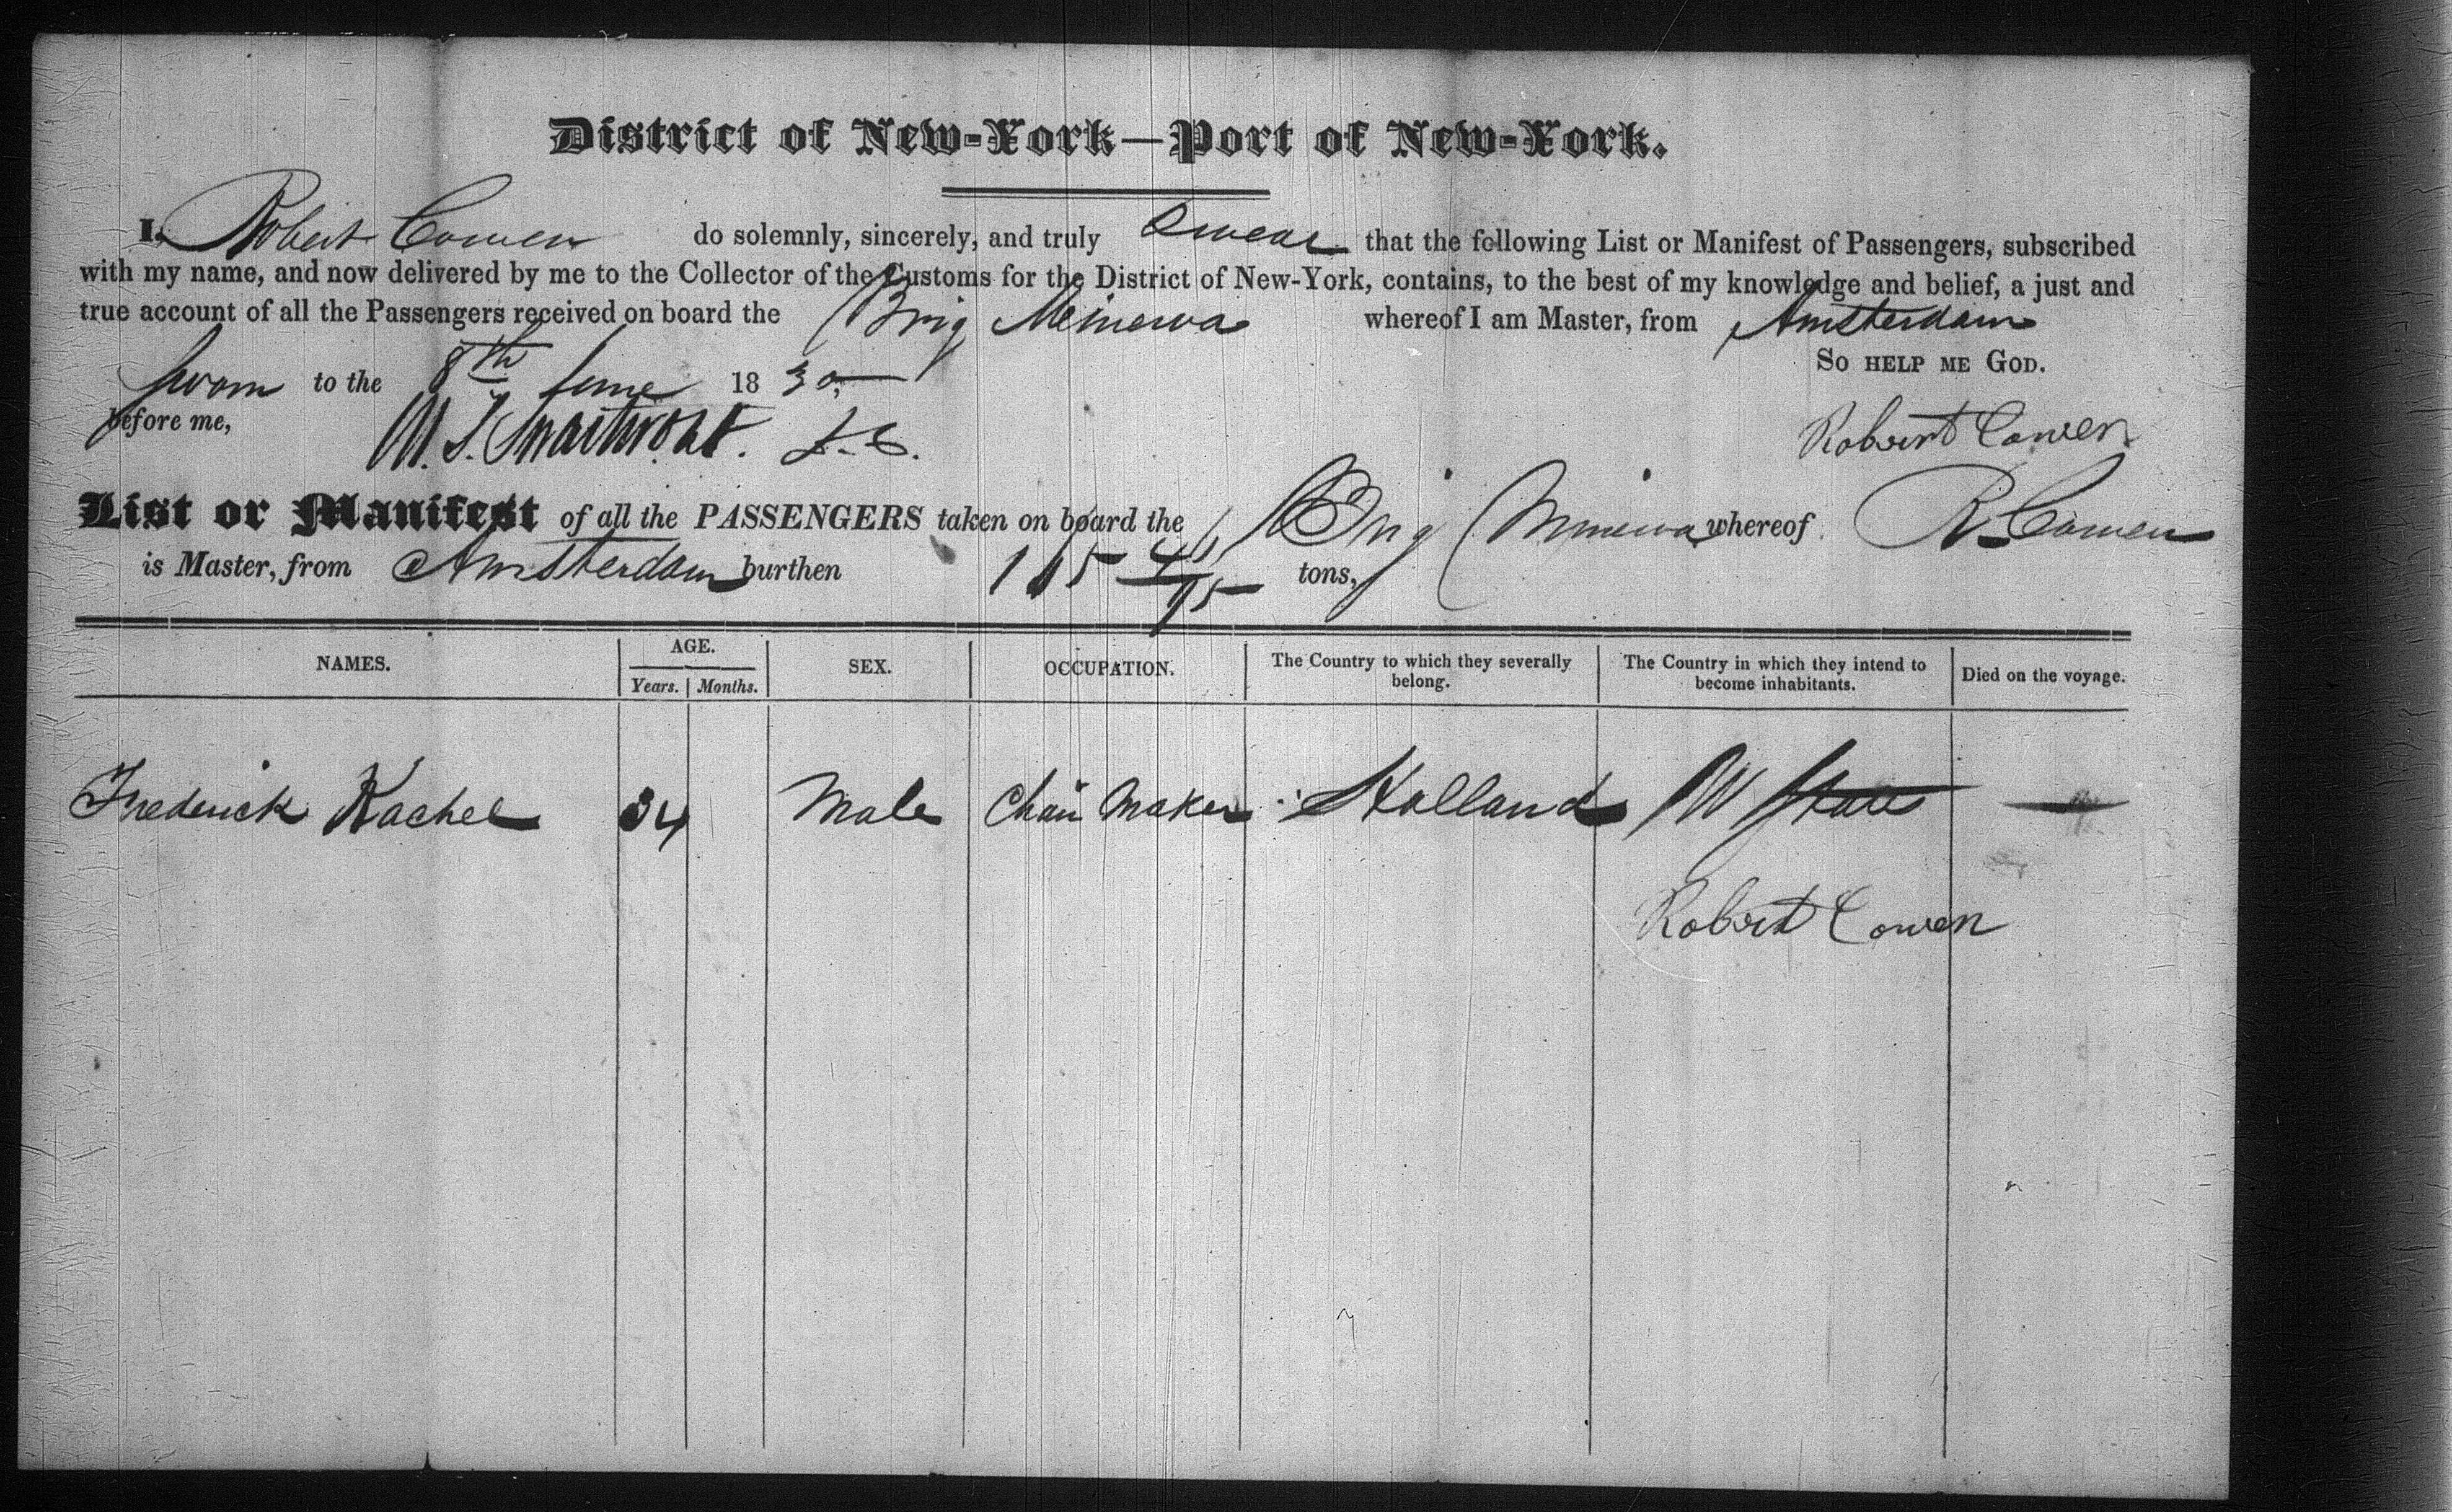 District of New-York—Port of New-York.
I, Robert Cowen do solemnly, sincerely, and truly Swear that the following List or Manifest of Passengers, subscribed
with my name, and now delivered by me to the Collector of the Customs for the District of New-York, contains, to the best of my knowledge and belief, a just and
true account of all the Passengers received on board the Brig Meinerva whereof I am Master, from Amsterdam
So help me God.
Sworn to the 8th June 1830
before me,
Robert Cowen
List or Manifest of all the PASSENGERS taken on board the Brig Minerva whereof R. Cowen
is Master, from Amsterdam burthen tons,
NAMES. AGE. SEX. OCCUPATION. The Country to which they severally belong. The Country in which they intend to become inhabitants. Died on the voyage.
Years. Months.
Frederick Kachel 34 Male Chair Maker Holland
Robert Cowen